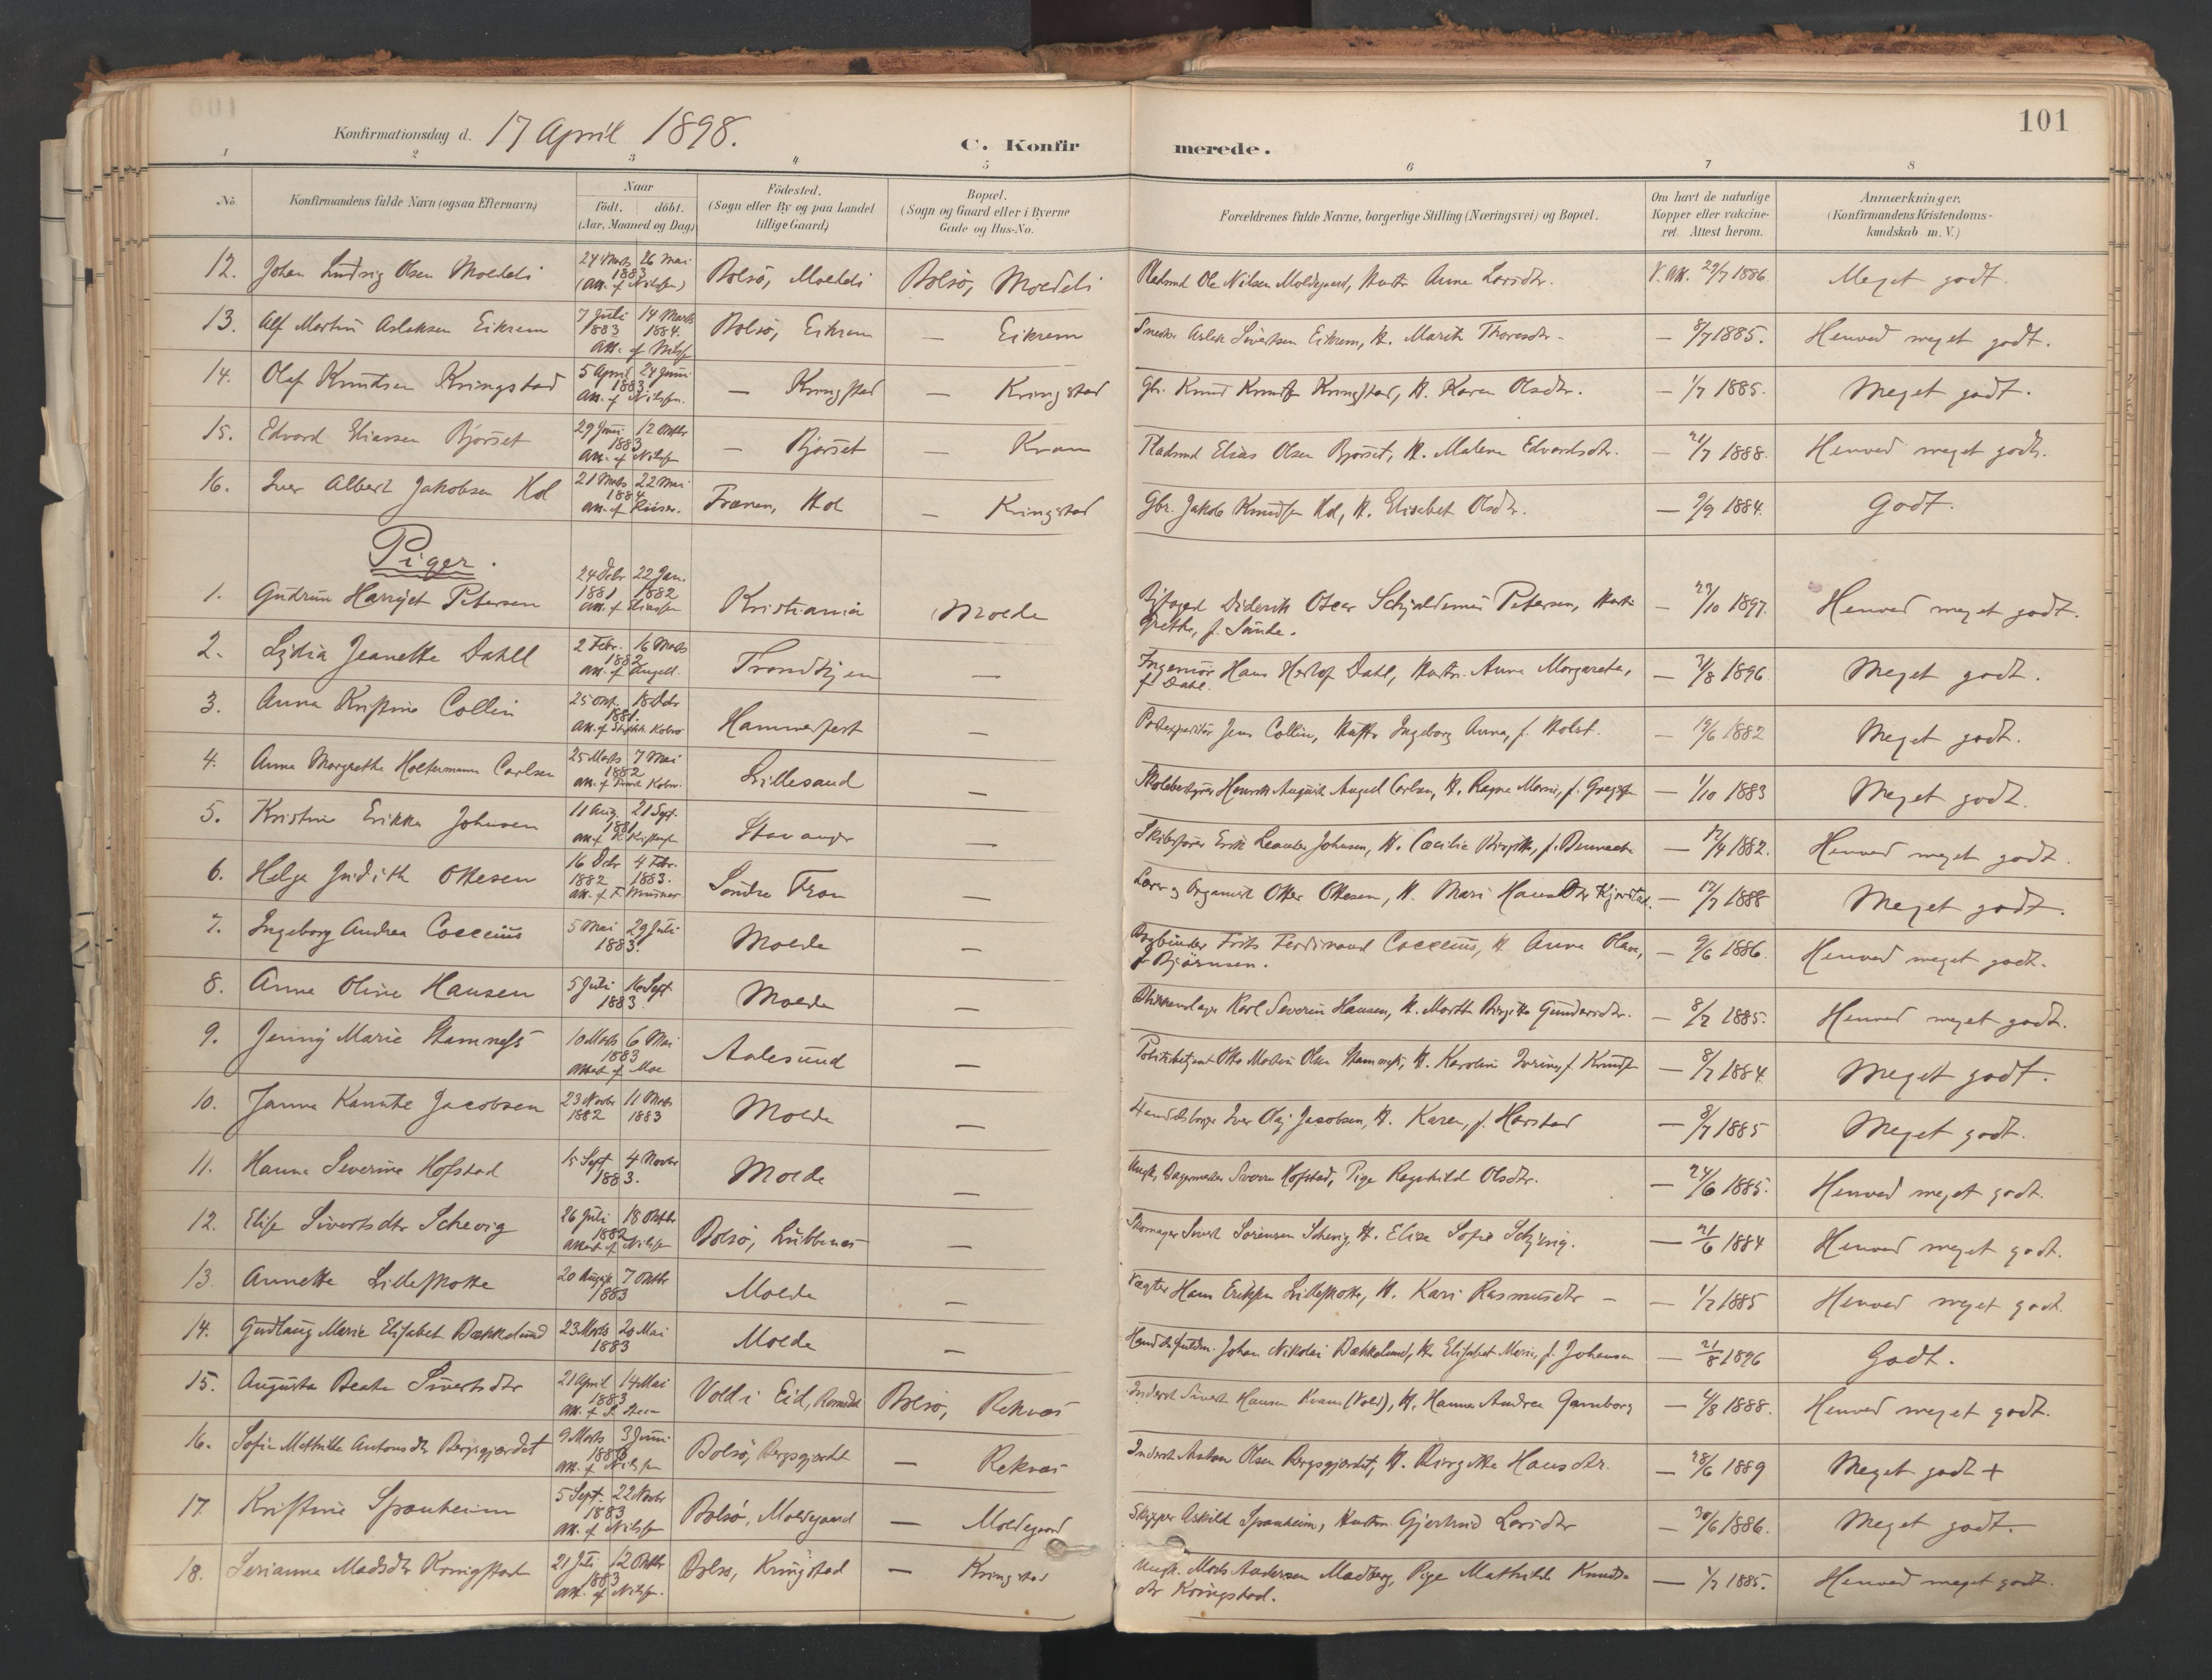 101
Konfirmationsdag d. 17 April 1898.
C. Konfirmerede.
1 2 3 4 5 6 7 8
No.
Konfirmandens fulde Navn (ogsaa Efternavn)
Naar
födt. döbt.
(Aar, Maaned og Dag)
Födested.
(Sogn eller By og paa Landet
tillige Gaard)
Bopæl.
(Sogn og Gaard eller i Byerne
Gade og Hus-No.
Forældrenes fulde Navne, borgerlige Stilling (Næringsvei) og Bopæl.
Om havt de naturlige
Kopper eller vakcine-
ret. Attest herom.
Anmærkninger.
(Konfirmandens Kristendoms-
kundskab m. V.)
12. Johan Ludvig Olsen Moeldeli 24 Marts 26 Mai 1883 (Att. f. Nilssen) Bolsö, Moeldeli Bolsö, Moeldeli Pladsmd Ole Nilsen Moldegaard, Hustr. Anne Larsdtr. V. Att. 29/7 1886 Meget godt.
13. Alf Martin Aslaksen Eikrem 7 Juli 1883 14 Marts 1884. Att. f. Nilssen Bolsö, Eikrem — Eikrem Smed Aslak Sivertsen Eikrem, H. Marit Thoresdtr. — 8/7 1885. Henved meget godt.
14. Olaf Knudsen Kringstad 5 April 24 Juni 1883 Att. f. Nilssen. — Kringstad — Kringstad Gbr. Knud Knudsen Kringstad, H. Karen Olsdtr. — 1/7 1885. Meget godt.
15. Edvard Eliassen Bjørset 29 Juni 12 Oktbr 1883 Att. f. Nilssen — Bjørset — Kvam Pladsmd Elias Olsen Bjørset, H. Malene Edvardsdtr. — 21/7 1888. Henved meget godt.
16. Iver Albert Jakobsen Hol 21 Marts 22 Mai 1884 Att. f. Frænen, Hol — Kringstad Gbr. Jakob Knudsen Hol, H. Elisabet Olsdtr. — 9/9 1884. Godt.
Piger.
1. Gudrun Harriet Petersen 24 Debr 1881 22 Jan. 1882 Kristiania Molde Byfoged Diderik Oscar Petersen, Hustr.
Grethe, f. Sunde. — 23/10 1897. Henved meget godt.
2. Lydia Jeanette Dahl 2 Febr. 16 Marts 1882 Att. f. Angell. Trondhjem — Ingeniør Hans Herlof Dahl, Hustr. Anna Margareta,
f. Dahl. — 31/8 1896 Meget godt.
3. Anna Kristine Collin 25 Okt. 18 Debr 1881. Hammerfest — Postexpeditør Jens Collin, Hustr. Ingeborg Anna, f. Holst. — 19/6 1882 Meget godt.
4. Anna Margrethe Holtermann Carlsen 25 Marts 7 Mai 1882 Lillesand — Skolebestyrer Henrik August Angell Carlsen, H. Ragna Marie, f. — 1/10 1883 Meget godt.
5. Kristine Erikka Johnsen 11 Aug. 21 Sept. 1881 Stavanger — Skibsfører Erik Leander Johnsen, H. Cæcilie Birgitte, f. — 12/4 1882. Henved meget godt.
6. Helga Judith Ottesen 16 Debr 1882 4 Febr. 1883. Søndre Fron — Lærer og Organist Otter Ottesen, H. Mari Hansdtr — 12/7 1888 Meget godt.
7. Ingeborg Andrea Coccius 5 Mai 29 Juli 1883. Molde — Bogbinder Frits Ferdinand Coccius, H. Anne Olave,
f. Bjørnsen. — 9/6 1886. Henved meget godt.
8. Anne Oline Hansen 5 Juli 16 Sept. 1883. Molde — Karl Severin Hansen, H. Marth Birgitte Gundersdtr. — 8/7 1885. Henved meget godt.
9. Jenny Marie Stamnes 10 Marts 6 Mai 1883 Attest f. Moe Aalesund — Politibetjent Otto Martin Olsen Stamnes, H. Karoline — 8/7 1884 Meget godt.
10. Janna Kamitte Jacobsen 23 Novbr 1882 11 Marts 1883 Molde — Handelsborger Iver Olaj Jacobsen, H. Karen, f. Harstad — 8/7 1885 Meget godt.
11. Hanna Severine Hofstad 15 Sept. 4 Novbr 1883. Molde — Ungk. Bagermester Hofstad, Pige Ragnhild Olsdtr. — 24/6 1885. Henved meget godt.
12. Elise Sivertsdtr Schevig 26 Juli 18 Oktbr 1882 Attest f. Nilssen Bolsö, Lubbenes — Skomager Sivert Sørensen Schevig, H. Elise Sofie — 21/6 1884 Henved meget godt.
13. Annette Lilleskotte 20 August 7 Oktbr 1883 Molde — Vægter Hans Eriksen Lilleskotte, H. Kari Rasmusdtr — — 1/7 1885 Henved meget godt.
14. Gudlaug Marie Elisabet Bækkelund 23 Marts 20 Mai 1883 Molde — Johan Nikolai Bækkelund, H. Elisabet Marie, f. Johansen — 21/8 1896 Godt.
15. Augusta Beate Sivertsdtr 21 April 14 Mai 1883 Att. f. S. Steen Vold i Eid, Romsdal Bolsö, Reknes Inderst Sivert Hansen Kvam (Vold), H. Hanna Andrea Gamborg — 4/8 1888. Henved meget godt.
16. Sofie Mathilde Antonsdtr Bergsgjærdet 9 Marts 3 Juni 1883 Att. f. Nilssen Bolsö, Bergsgjærdet — Reknes Inderst Anton Olsen Bergsgjærdet, H. Birgitte Hansdtr. — 28/6 1889 Meget godt +
17. Kristine Spanheim 5 Sept. 22 Novbr 1883 Att. f. Nilssen Bolsö, Moldegaard — Moldegaard Skipper Askild Spanheim, Hustr. Gjertrud Larsdtr — 30/6 1886. Meget godt.
18. Serianna Madsdtr Kringstad 21 Juli 12 Oktbr 1883 Att. f. Nilssen. Bolsö, Kringstad — Kringstad Ungk. Mads Andersen Pige Mathilde Knuds-
dtr Kringstad. — 1/7 1885. Henved meget godt.